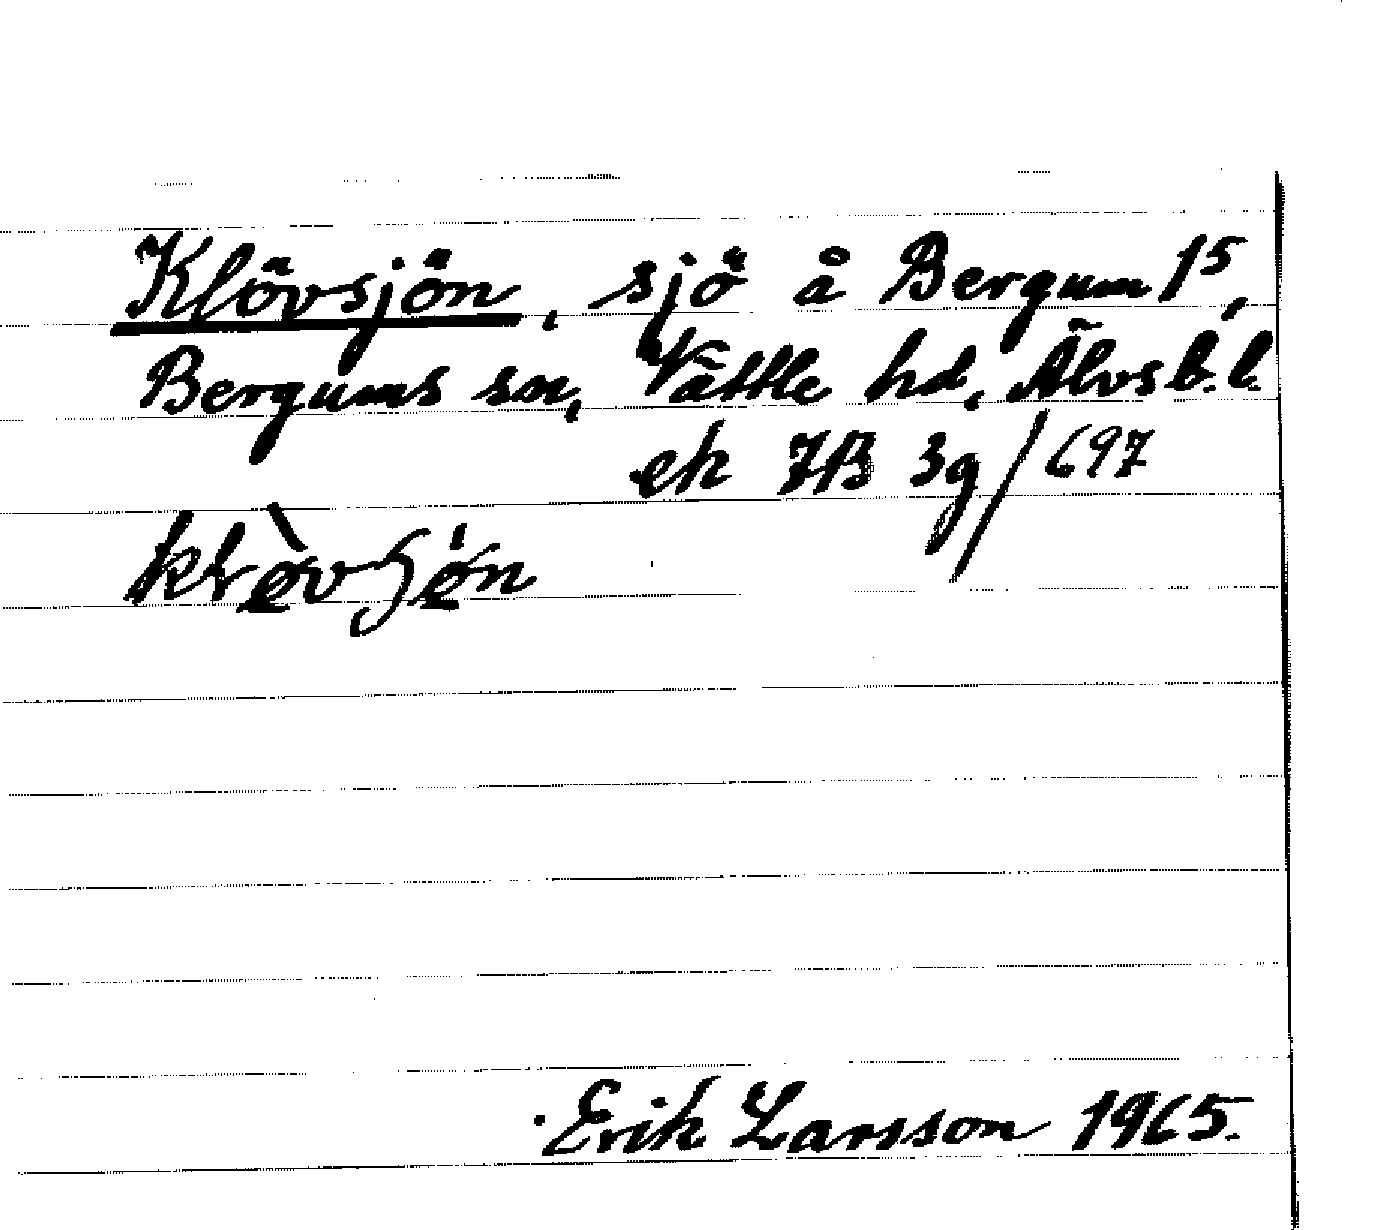 Klövsjön, sjö å Bergum 15,
Bergums sn, Vättle hd, Älvsb. l.
ek 7B 3g/697
Erik Larsson 1965.